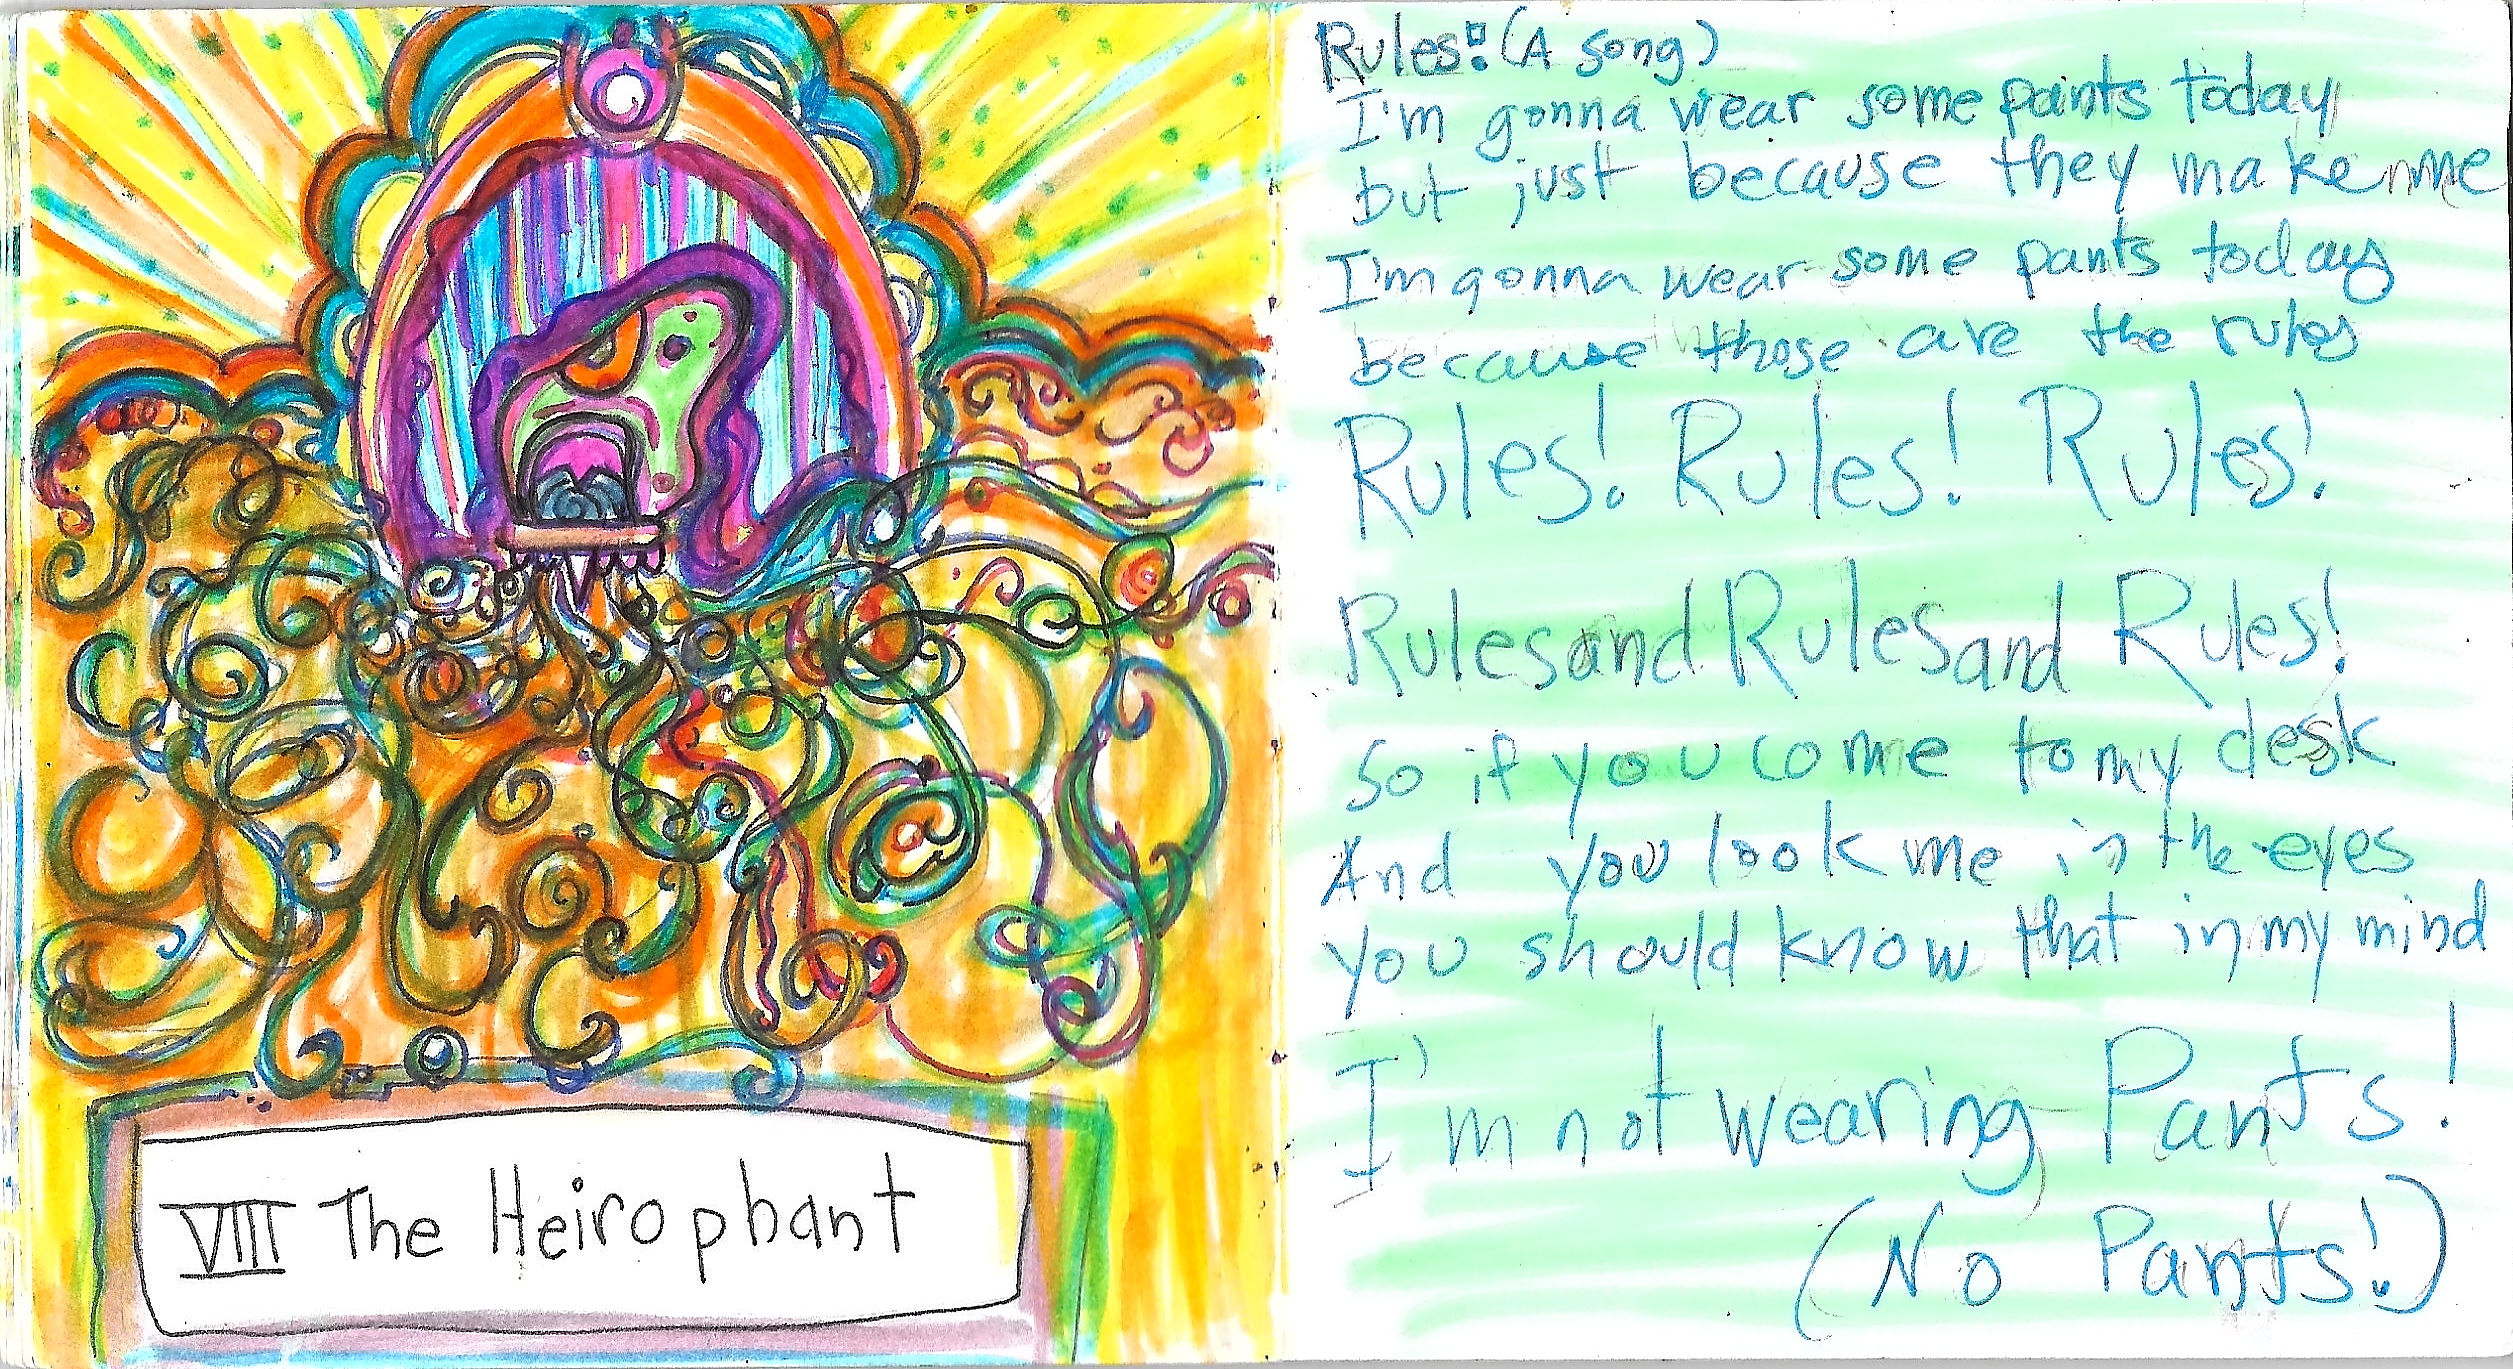 VIII The Heirophant
Rules: (A song)
I'm gonna wear some pants today
but just because they make me
I'm gonna wear some pants today
because those are the rules
Rules! Rules! Rules!
Rules and Rules and Rules!
So if you come to my desk
And you look me in the eyes
you should know that in my mind
I'm not wearing Pants!
(No Pants!)